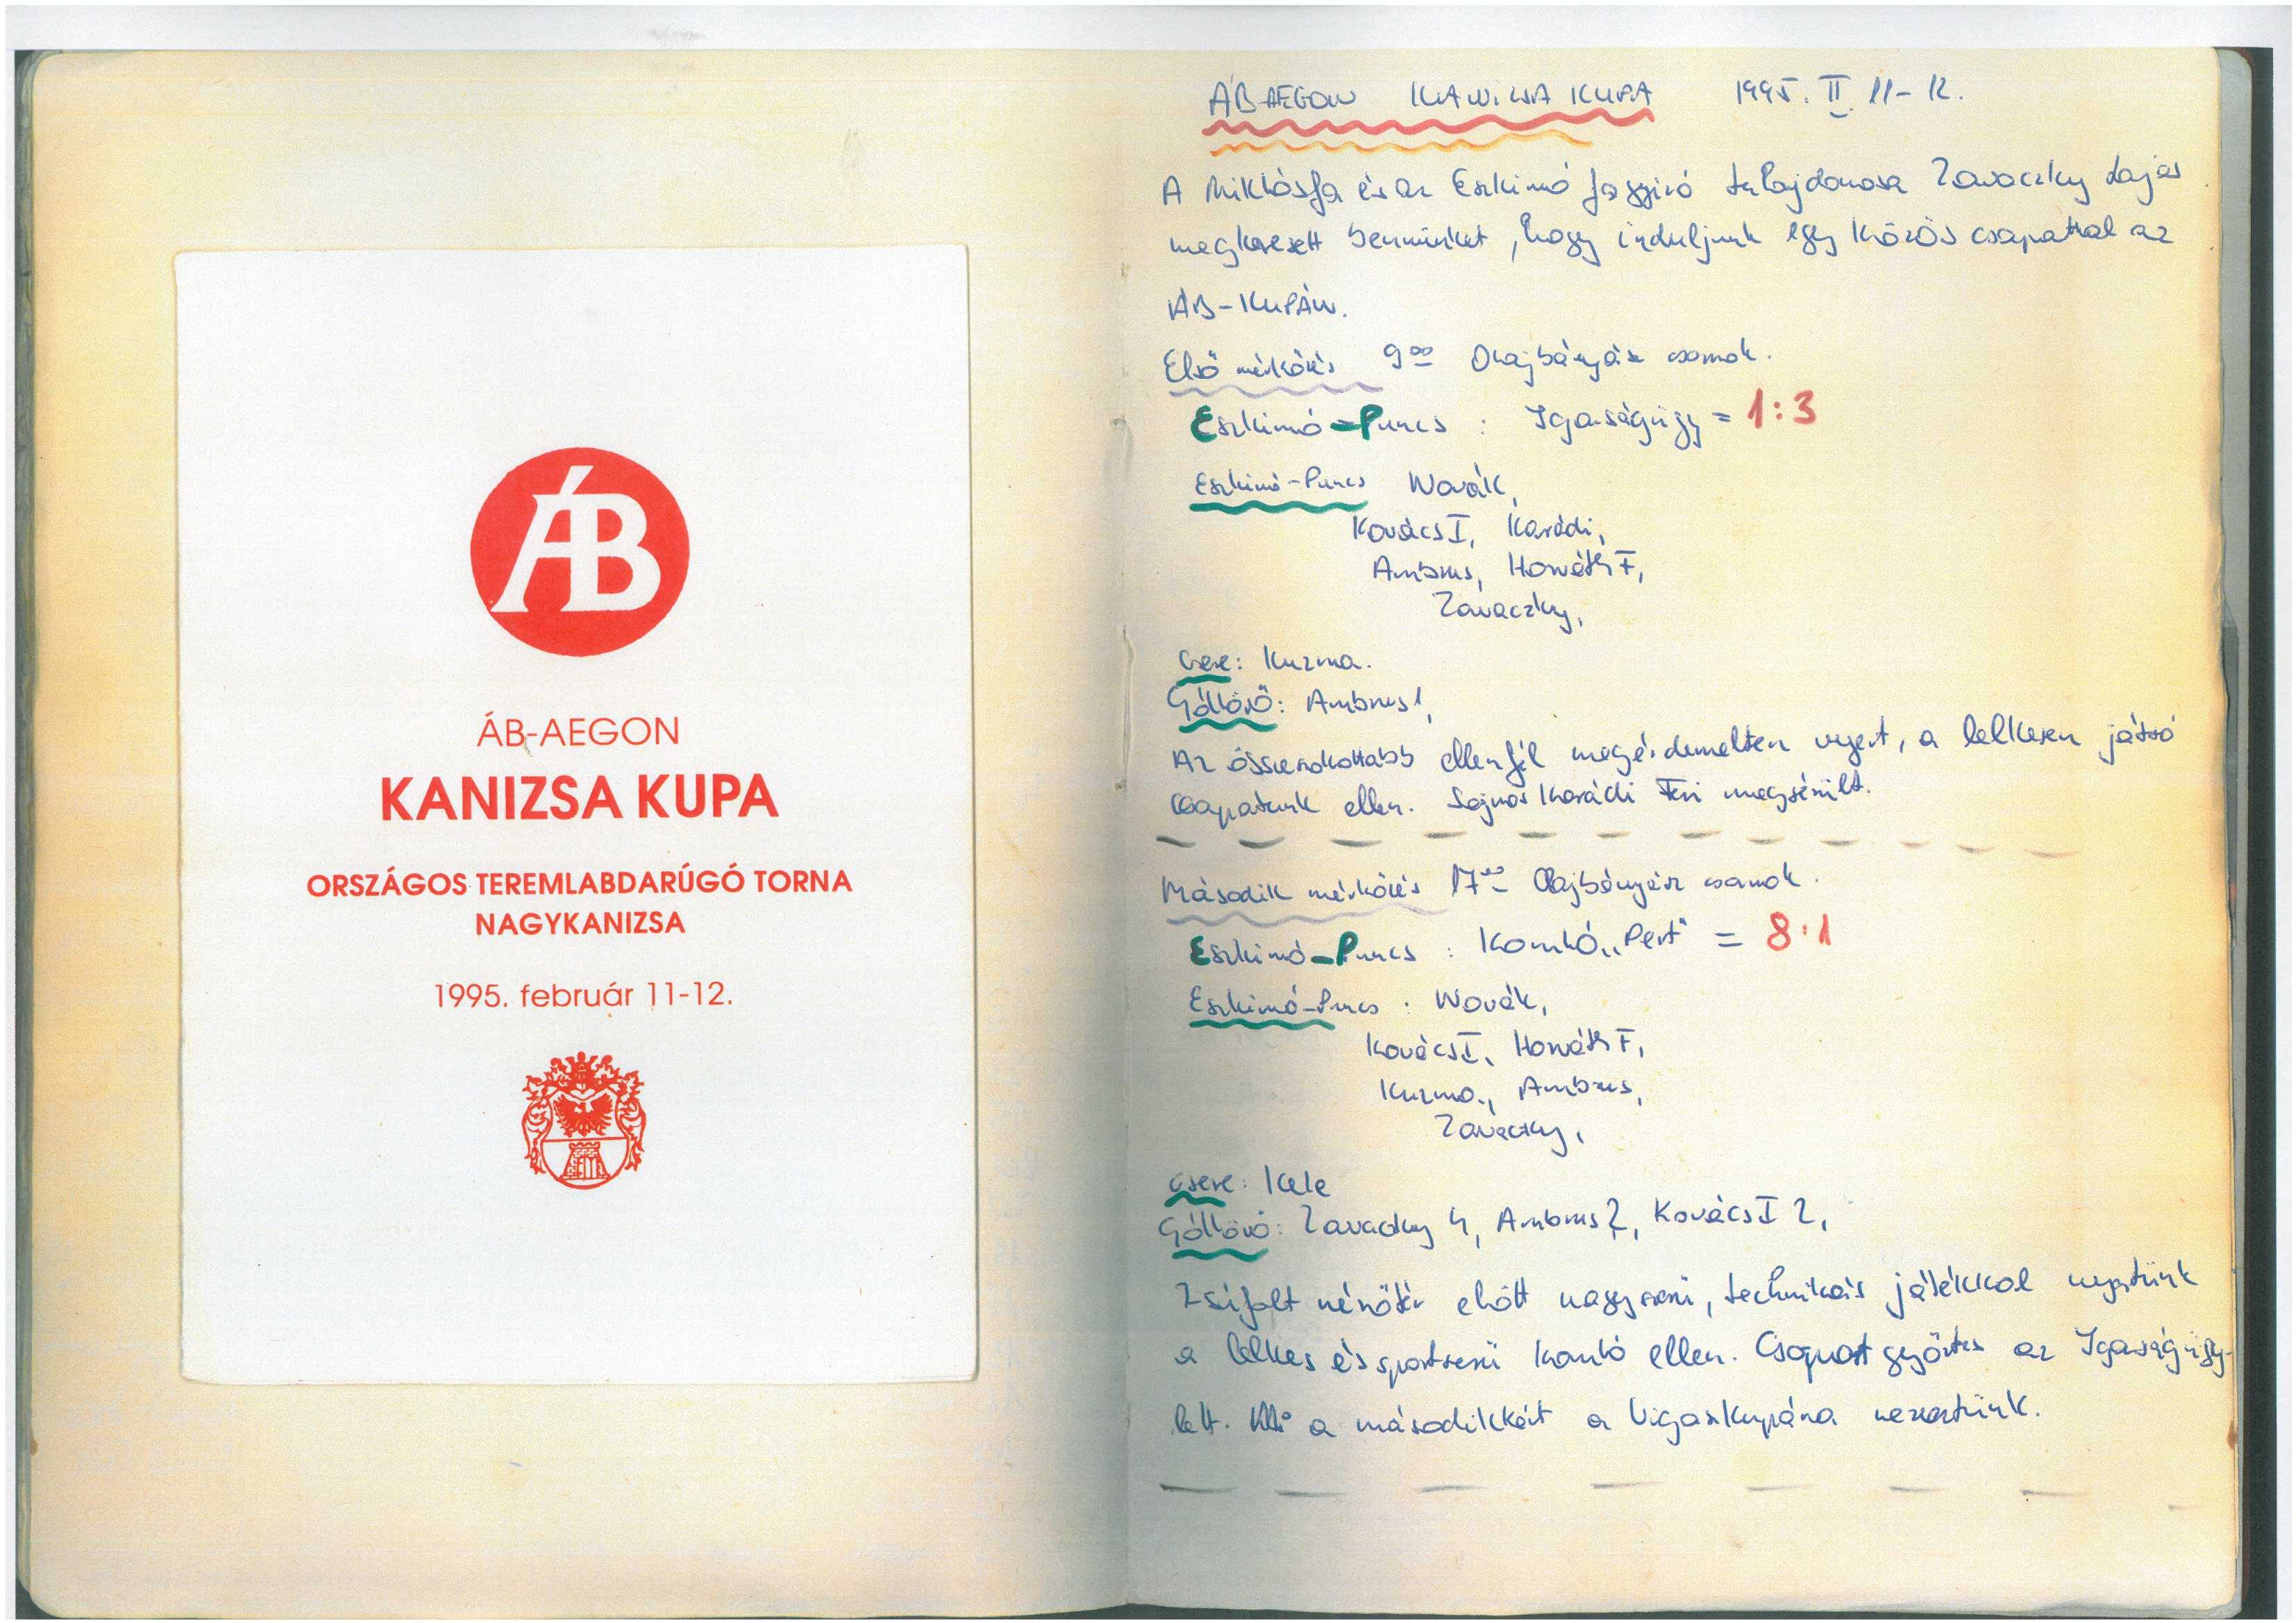 ÁB
ÁB-AEGON
KANIZSA KUPA
ORSZÁGOS TEREMLABDARÚGÓ TORNA
NAGYKANIZSA
1995. február 11-12.
ÁB-AEGON KANIZSA KUPA 1995. II. 11-12.
A Miklósfa és az Eszkimó fagyizó tulajdonosa Zavaczky Lajos
megkeresett bennünket, hogy induljunk egy közös csapattal az
ÁB-KUPÁN.
Első mérkőzés 9 00 Olajbányász csarnok.
Eszkimó-Purcs : Igazságügy = 1:3
Eszkimó-Purcs Novák,
Kovács I, Karádi,
Ambrus, Horváth F,
Zavaczky,
Csere: Kuzma.
Góllövő: Ambrus 1,
Az összeszokottabb ellenfél megérdemelten nyert, a lelkesen játszó
csapatunk ellen. Sajnos Karádi Feri megsérült.
Második mérkőzés 17 00 Olajbányász csarnok.
Eszkimó-Purcs : Kombó „Pert" = 8:1
Eszkimó-Purcs : Novák,
Kovács I, Horváth F,
Kuzma, Ambrus,
Zavaczky,
csere: Kele
Góllövő: Zavaczky 4, Ambrus 2, Kovács I 2,
Zsúfolt nézőtér előtt nagyszerű, technikás játékkal nyertünk
a lelkes és sportszerű Kombó ellen. Csoport győztes az Igazságügy
lett. Mi a másodikként a Vigaszkupára neveztünk.